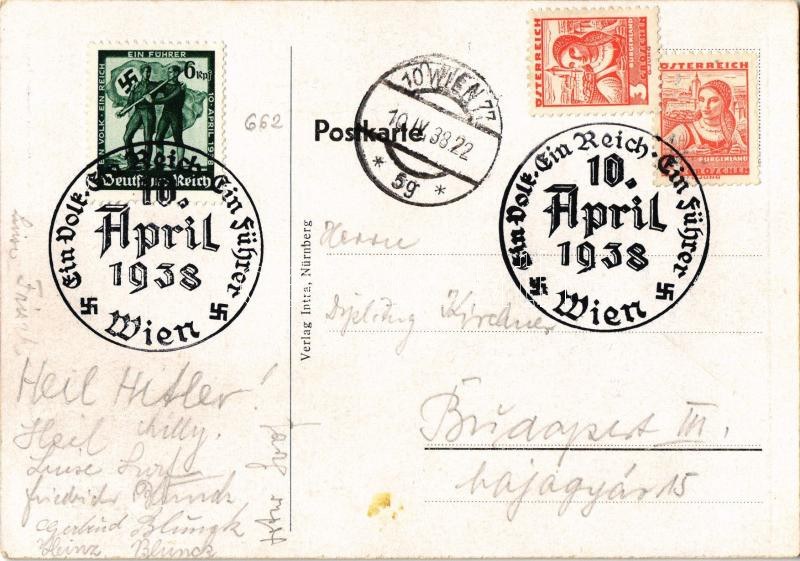 EIN FÜHRER
EIN VOLK · EIN REICH
10·APRIL 1938
6 Rpf
Deutsches Reich
662
Ein Volk · Ein Reich · Ein Führer
10.
April
1938
Wien
Postkarte
10 WIEN 77
10.IV.38.22
* 5g *
ÖSTERREICH
BURGENLAND
3
GROSCHEN
ÖSTERREICH
BURGENLAND
GROSCHEN
Ein Volk · Ein Reich · Ein Führer
10.
April
1938
Wien
Verlag Intra, Nürnberg
Herrn
Kirchner
Budapest III.
15
Heil Hitler!
Heil
Luise
Friedrich Blunck
Gertrud Blunck
Heinz Blunck